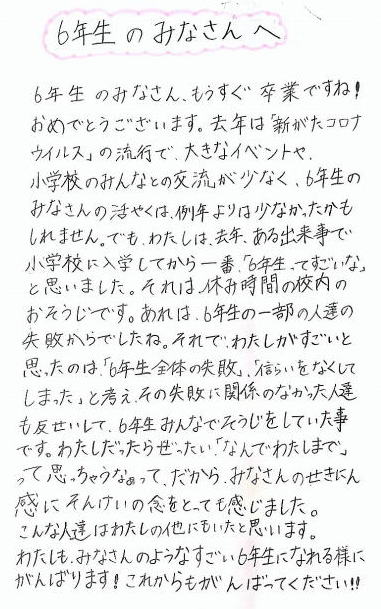 6年生のみなさんへ
6年生のみなさん、もうすぐ卒業ですね!
おめでとうございます。去年は「新がたコロナ
ウイルス」の流行で、大きなイベントや、
小学校のみんなとの交流が少なく、6年生の
みなさんの活やくは、例年よりは少なかったかも
しれません。でも、わたしは、去年、ある出来事で
小学校に入学してから一番、「6年生ってすごいな」
と思いました。それは、休み時間の校内の
おそうじです。あれは、6年生の一部の人達の
失敗からでしたね。それで、わたしがすごいと
思ったのは、「6年生全体の失敗」、「信らいをなくして
しまった」と考え、その失敗に関係のなかった人達
も反せいして、6年生みんなでそうじをしていた事
です。わたしだったらぜったい、「なんでわたしまで」
って思っちゃうなぁって、だから、みなさんのせきにん
感にそんけいの念をとっても感じました。
こんな人達はわたしの他にもいたと思います。
わたしも、みなさんのようなすごい6年生になれる様に
がんばります!これからもがんばってください!!